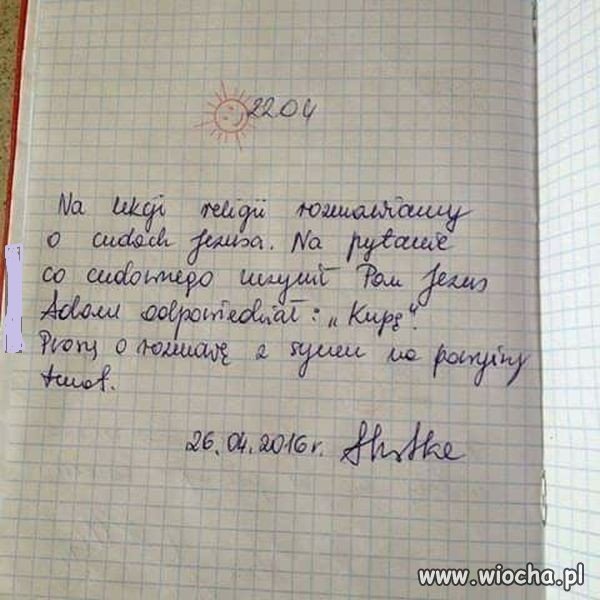 22.04
Na lekcji religii rozmawiamy
o cudach Jezusa. Na pytanie
co cudownego uczynił Pan Jezus
Adam odpowiedział: „Kupę".
Proszę o rozmowę z synem na powyższy
temat.
26.04.2016r.
www.wiocha.pl